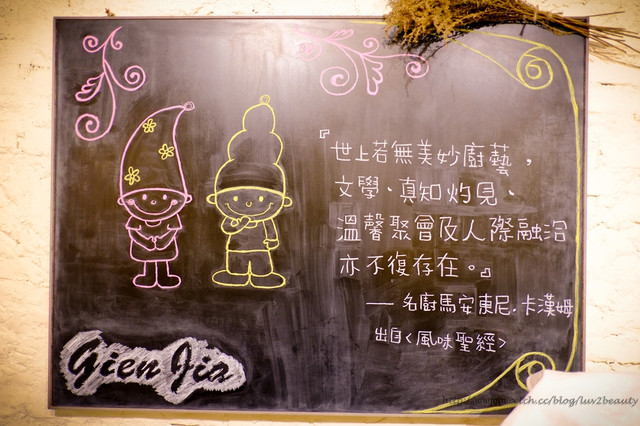 『世上若無美妙廚藝，
文學、真知灼見、
溫馨聚會及人際融洽
亦不復存在。』
── 名廚馬安東尼．卡漢姆
出自<風味聖經>
Gien Jia